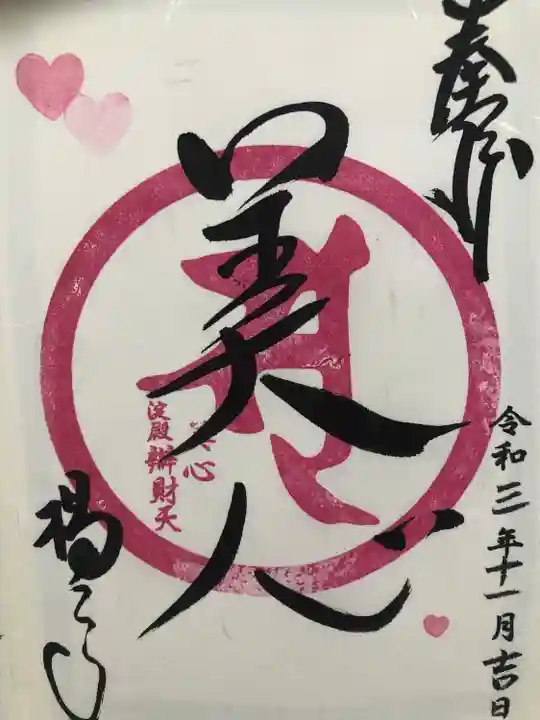 奉拝
令和三年十一月吉日
美心
美心
淀殿辨財天
楊谷寺